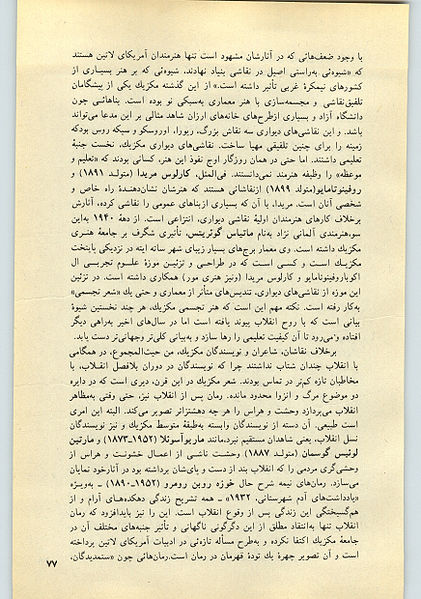 با وجود ضعف‌هائی که در آثارشان مشهود است تنها هنرمندان آمریکای لاتین هستند
که «شیوه‌ئی به‌راستی اصیل در نقاشی بنیاد نهادند، شیوه‌ئی که بر هنر بسیاری از
کشورهای نیمکرهٔ غربی تأثیر داشته است.» از این گذشته مکزیك یکی از پیشگامان
تلفیق‌نقاشی و مجسمه‌سازی با هنر معماری به‌سبکی نو بوده است. بناهائی چون
دانشگاه آزاد و بسیاری ازطرح‌های خانه‌های ارزان شاهد مثالی بر این مدعا می‌تواند
باشد. و این نقاشی‌های دیواری سه نقاش بزرگ، ریورا، اوروسکو و سیکه روس بودکه
زمینه را برای چنین تلفیقی مهیا ساخت. نقاشی‌های دیواری مکزیك، نخست جنبهٔ
تعلیمی داشتند. اما حتی در همان روزگار اوج نفوذ این هنر، کسانی بودند که «تعلیم و
موعظه» را وظیفه هنرمند نمی‌دانستند. فی‌المثل، کارلوس مریدا (متولد ۱۸۹۱) و
روفینوتامایو(متولد ۱۸۹۹) ازنقاشانی هستند که هنرشان نشان‌دهندهٔ راه خاص و
شخصی آنان است. مریدا، با آن که بسیاری ازبناهای عمومی را نقاشی کرده، آثارش
برخلاف کارهای هنرمندان اولیهٔ نقاشی دیواری، انتزاعی است. از دههٔ ۱۹۴۰ به‌این
سو،هنرمندی آلمانی نژاد به‌نام ماتیاس گوئریتس، تأثیری شگرف بر جامعهٔ هنری
مکزیك داشته است. وی معمار برج‌های بسیار زیبای شهر ساته لیته در نزدیکی پایتخت
مکزیك است و کسی است که در طراحی و تزئین موزهٔ علوم تجربی ال
اکو(باروفینوتامایو و کارلوس مریدا (ونیز هنری مور) همکاری داشته است. در تزئین
این موزه از نقاشی‌های دیواری، تندیس‌های متأثر از معماری و حتی یك «شعر تجسمی»
به‌کار رفته است. نکته مهم این است که هنر تجسمی مکزیك، هر چند نخستین شیوهٔ
بیانی است که با روح انقلاب پیوند یافته است اما در سال‌های اخیر به‌راهی دیگر
افتاده و می‌رود تا آن کیفیت تعلیمی را رها سازد و به‌بیانی کلی‌تر وجهانی‌تر دست یابد.
برخلاف نقاشان، شاعران و نویسندگان مکزیك، من حیث‌المجموع، در همگامی
با انقلاب چندان شتاب نداشتند چرا که نویسندگان در دوران بلافصل انقلاب، با
مخاطبان تازه کم‌تر در تماس بودند. شعر مکزیك در این قرن، دیری است که در دایره
دو موضوع مرگ و انزوا محدود مانده. رمان پس از انقلاب نیز، حتی وقتی به‌مظاهر
انقلاب می‌پردازد وحشت و هراس را هر چه دهشتزاتر تصویر می‌کند. البته این امری
است طبیعی. آن دسته از نویسندگان وابسته به‌طبقهٔ متوسط مکزیك و نیز نویسندگان
نسل انقلاب، یعنی شاهدان مستقیم نبرد،مانند ماریوآسوئلا (۱۹۵۲–۱۸۷۳) و مارتین
لوئیس گوسمان (متولد ۱۸۸۷) وحشت ناشی از اعمال خشونت و هراس از
وحشی‌گری مردمی را که انقلاب بند از دست و پای‌شان برداشته بود در آثارخود نمایان
می‌سازد. رمان‌های نیمه شرح حال خوزه روبن رومرو (۱۹۵۲–۱۸۹۰) – به‌ویژه
«یادداشت‌های آدم شهرستانی، ۱۹۳۲» – همه تشریح زندگی دهکده‌های آرام و از
هم‌گسیختگی این زندگی پس از وقوع انقلاب است. این را نیز بایدافزود که رمان
انقلاب تنها به‌انتقاد مطلق از این دگرگونی ناگهانی و تأثیر جنبه‌های مختلف آن در
جامعهٔ مکزیك اکتفا نکرده و به‌طرح مسأله تازه‌ئی در ادبیات آمریکای لاتین پرداخته
است و آن تصویر چهرهٔ یك تودهٔ قهرمان در رمان است.رمان‌هائی چون «ستمدیدگان،
۷۷